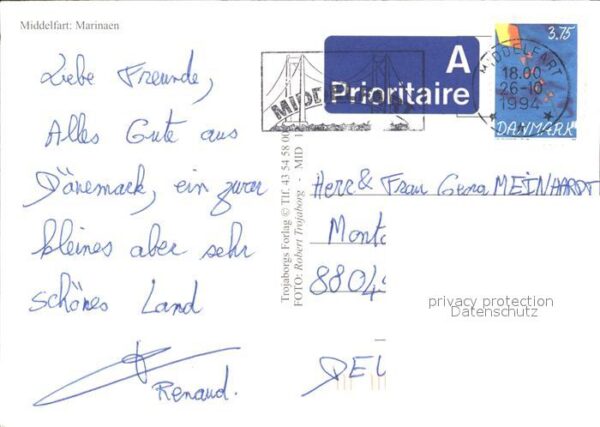 Middelfart: Marinaen
Liebe Freunde,
Alles Gute aus
Dänemark, ein zwar
kleines aber sehr
schönes Land
Renaud.
Trojaborgs Forlag © Tlf. 43 54 58 00
FOTO: Robert Trojaborg - MID 1
MIDDELFART
A
Prioritaire
MIDDELFART
18.00
26-10
1994
3.75
DANMARK
Herr & Frau Gera MEINHARDT
Monta
88049
privacy protection
Datenschutz
DEU